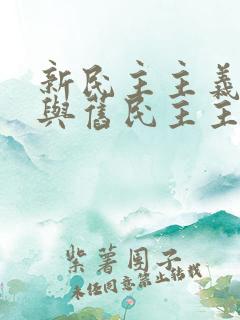 新民主主義
與舊民主主
紫薯团子
未经同意禁止转载